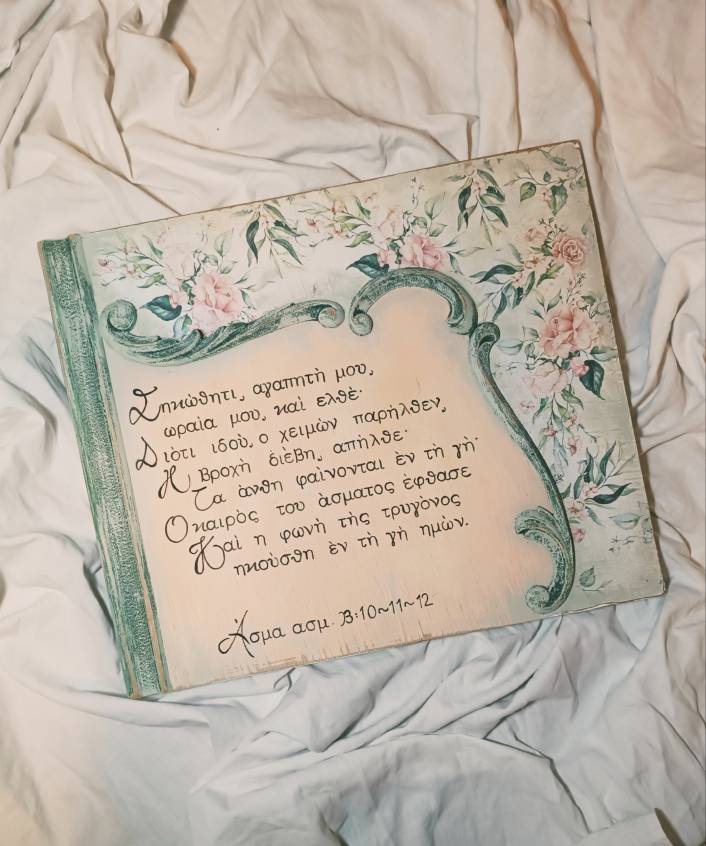 Σηκώθητι, αγαπητὴ μου,
ωραία μου, καὶ ελθὲ·
Διὸτι ιδοὺ, ο χειμὼν παρήλθεν,
Η Βροχὴ διὲβη, απήλθε·
Τα ὰνθη φαὶνονται ὲν τὴ γὴ·
Ο καιρὸς του ὰσματος ὲφθασε
Καὶ η φωνὴ τὴς τρυγὸνος
ηκοὺσθη ὲν τὴ γὴ ημὼν.
Άσμα ασμ. Β:10~11~12